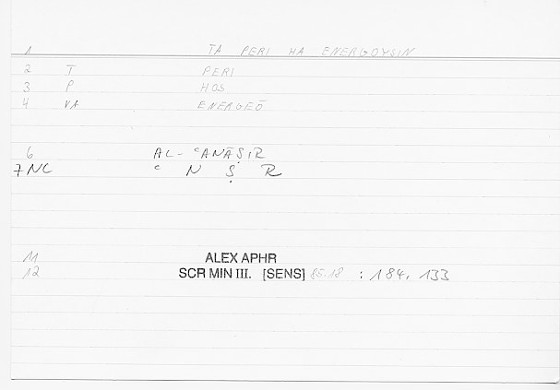 1 TA PERI HA ENERGOYSIN
2 T PERI
3 P HOS
4 VA ENERGEŌ
6 AL- ʿANĀṢIR
7 NC ʿ N Ṣ R
11 ALEX APHR
12 SCR MIN III. [SENS] 85.18 : 184, 133